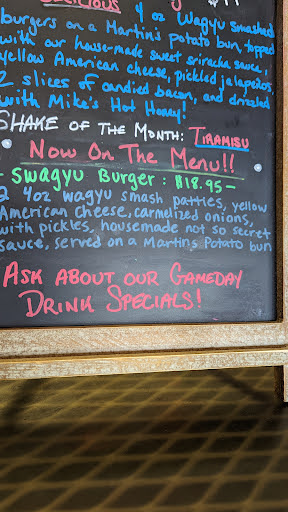 4 oz Wagyu smashed
burgers on a Martin's potato bun, topped
with our house-made sweet sriracha sauce,
yellow American cheese, pickled jalapeños,
2 slices of candied bacon, and drizzled
with Mike's Hot Honey!
SHAKE OF THE MONTH: TIRAMISU
NOW ON THE MENU!!
- SWAGYU BURGER: $18.95 -
2 4oz wagyu smash patties, yellow
American cheese, carmelized onions,
with pickles, housemade not so secret
sauce, served on a Martins Potato bun
ASK ABOUT OUR GAMEDAY
DRINK SPECIALS!